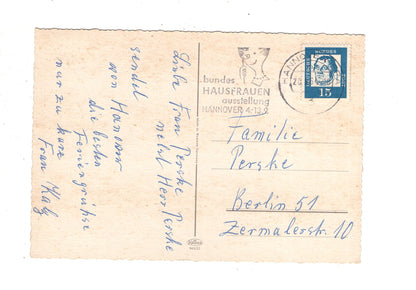 Liebe Frau Perske
nebst Herr Perske
sendet
von Hanover
die besten
Feriengrüße
nur zu kurz
Frau Kalz
bundes
HAUSFRAUEN
ausstellung
HANNOVER 4-13.
HANNO
15
Familie
Perske
Berlin 51
Zermalerstr. 10